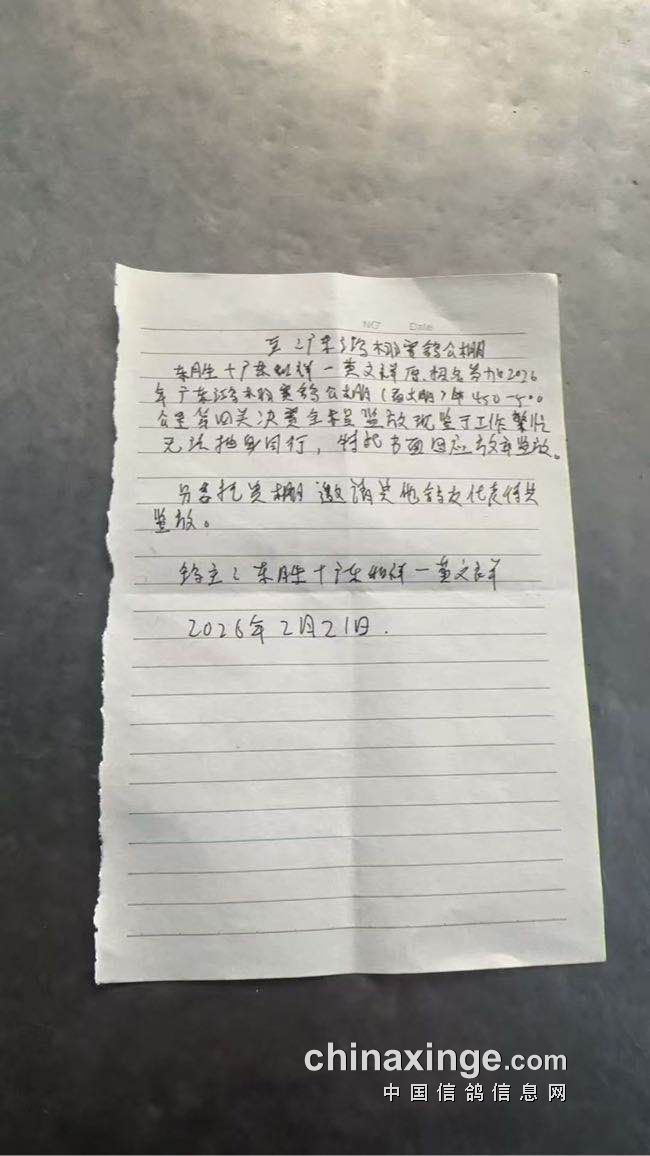 NO Date
至:广东鸿本源赛鸽公棚
东胜生十广东灿祥一黄文祥原报名参加2026
年广东鸿本源赛鸽公棚(西大棚)年450-500
公里第四关决赛全程监放现鉴于工作繁忙
无法抽身同行,特此书面回应放弃监放。
另委托贵棚邀请其他鸽友代表
监放。
鸽主:东胜生十广东灿祥一黄文祥
2026年2月21日.
chinaxinge.com
中国信鸽信息网